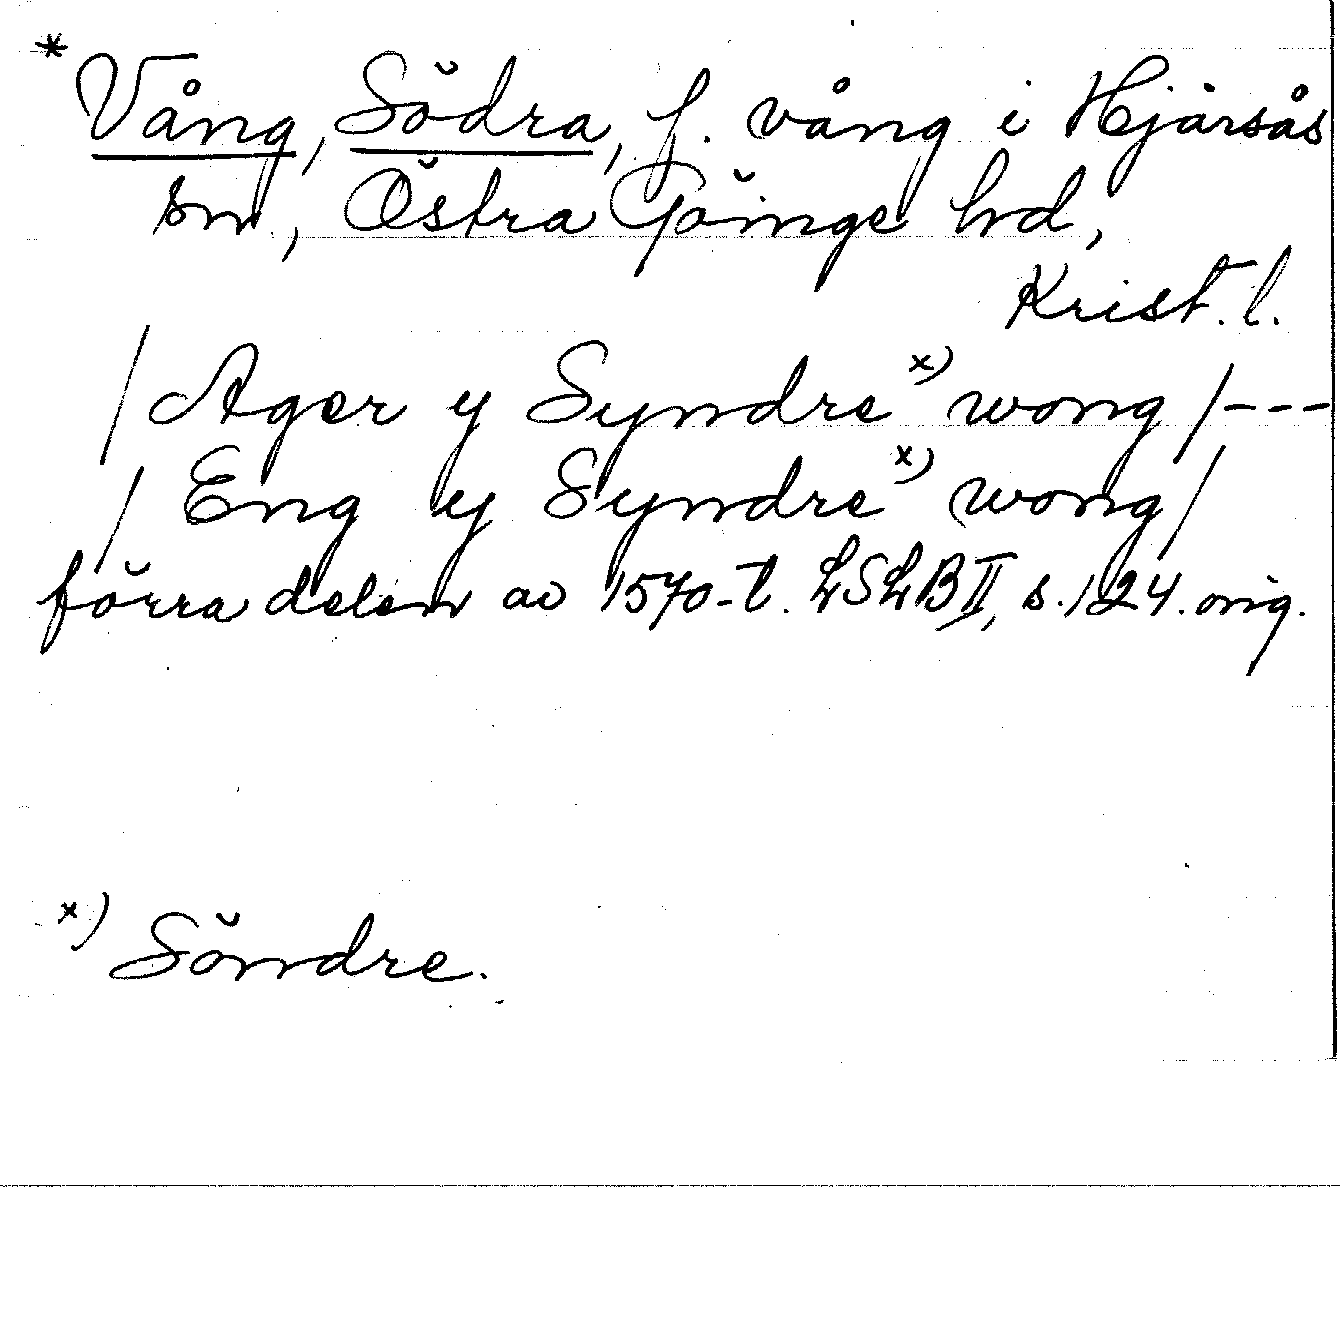 * Vång, Södra, f. vång i Hjärsås
sn, Östra Göinge hd,
Krist. l.
/ Ager y Syndre x) wong / ---
/ Eng y Syndre x) wong /
förra delen av 1570-t. LSLB II, s. 124. orig.
x) Söndre.